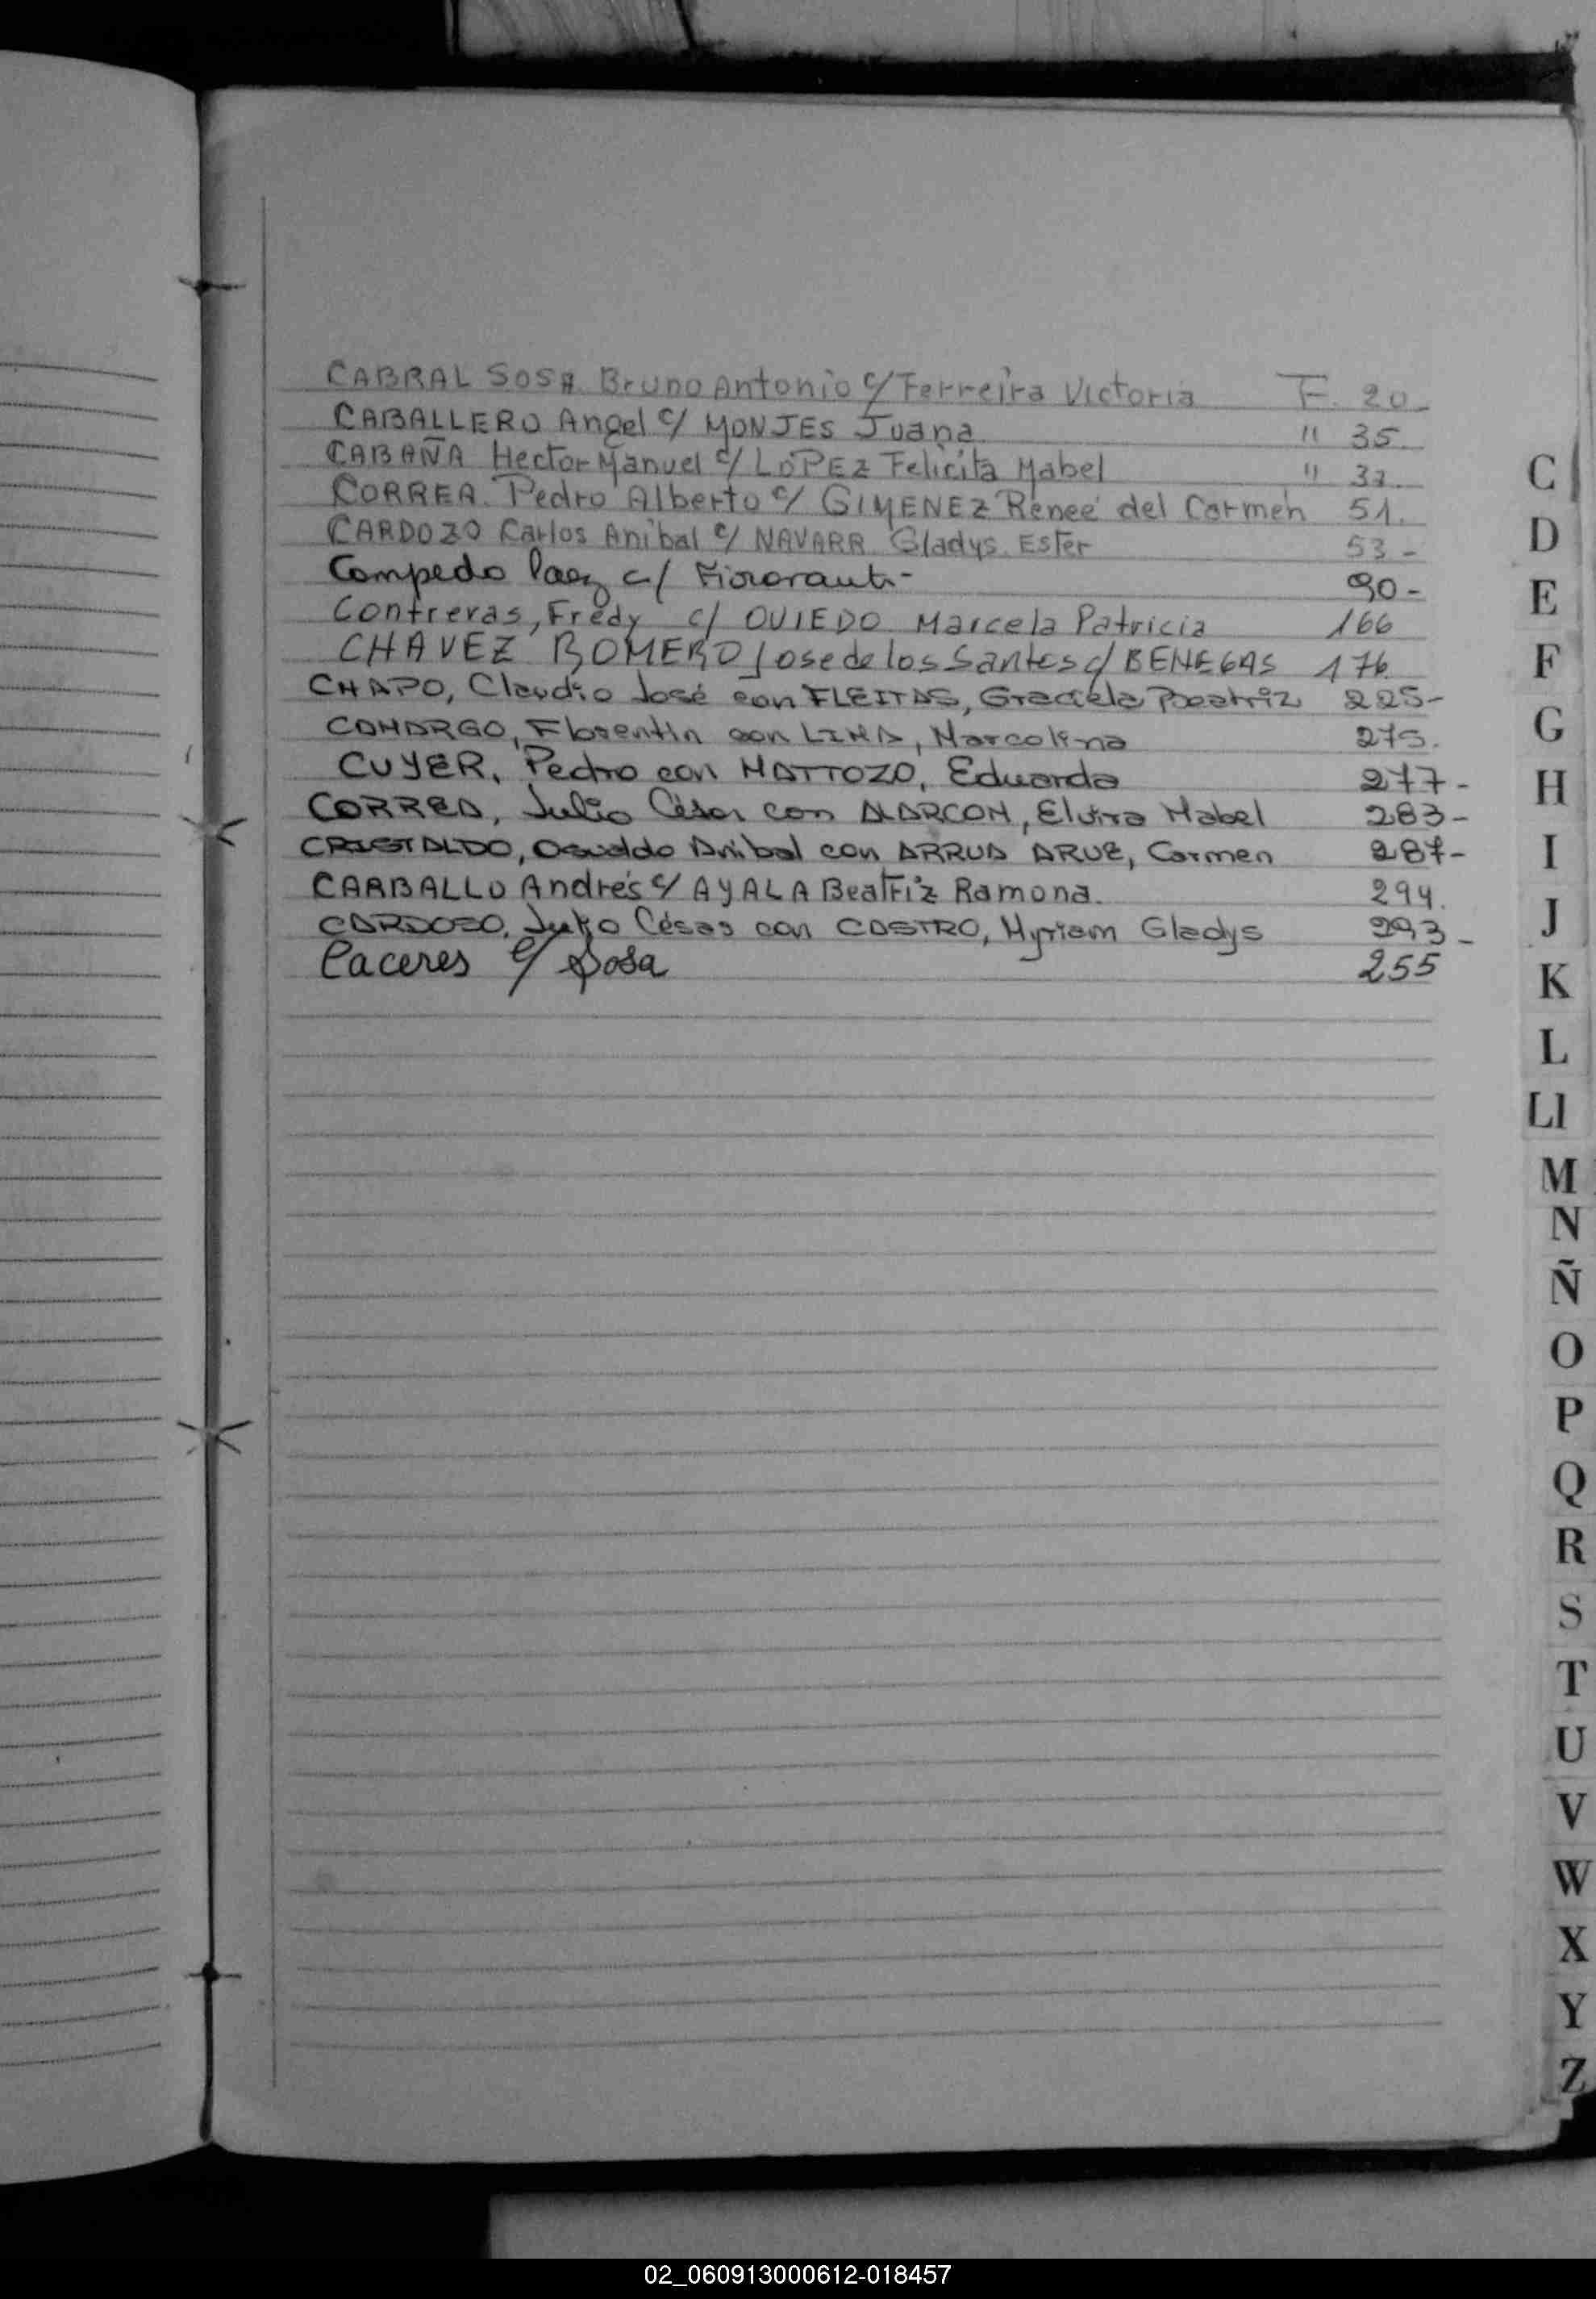 CABRAL SOSA Bruno Antonio c/ Ferreira Victoria F. 20-
CABALLERO Angel c/ MONJES Juana " 35.
CABAÑA Hector Manuel c/ LOPEZ Felicita Mabel "
CORREA Pedro Alberto c/ GIMENEZ Reneé del Carmen 51.
CARDOZO Carlos Anibal c/ NAVARR Gladys Ester 53-
Campedo Paez c/ 90-
Contreras, Fredy c/ OVIEDO Marcela Patricia 166
CHAVEZ ROMERO Jose de los Santos c/ BENEGAS 176.
CHAPO, Claudio José con FLEITAS, Graciela Beatriz 225-
CAMARGO, Florentin con LIMA, Marcolina 275.
CUYER, Pedro con MATTOZO, Eduarda 277-
CORREA, Julio César con ALARCON, Elvira Mabel 283-
CRISTALDO, Osvaldo Anibal con ARRUA ARUZ, Carmen 287-
CARBALLO Andrés c/ AYALA Beatriz Ramona. 294.
CARDOZO, Julio César con CASTRO, Myriam Gladys 293-
Caceres c/ Sosa 255
C
D
E
F
G
H
I
J
K
L
Ll
M
N
Ñ
O
P
Q
R
S
T
U
V
W
X
Y
Z
02_060913000612-018457